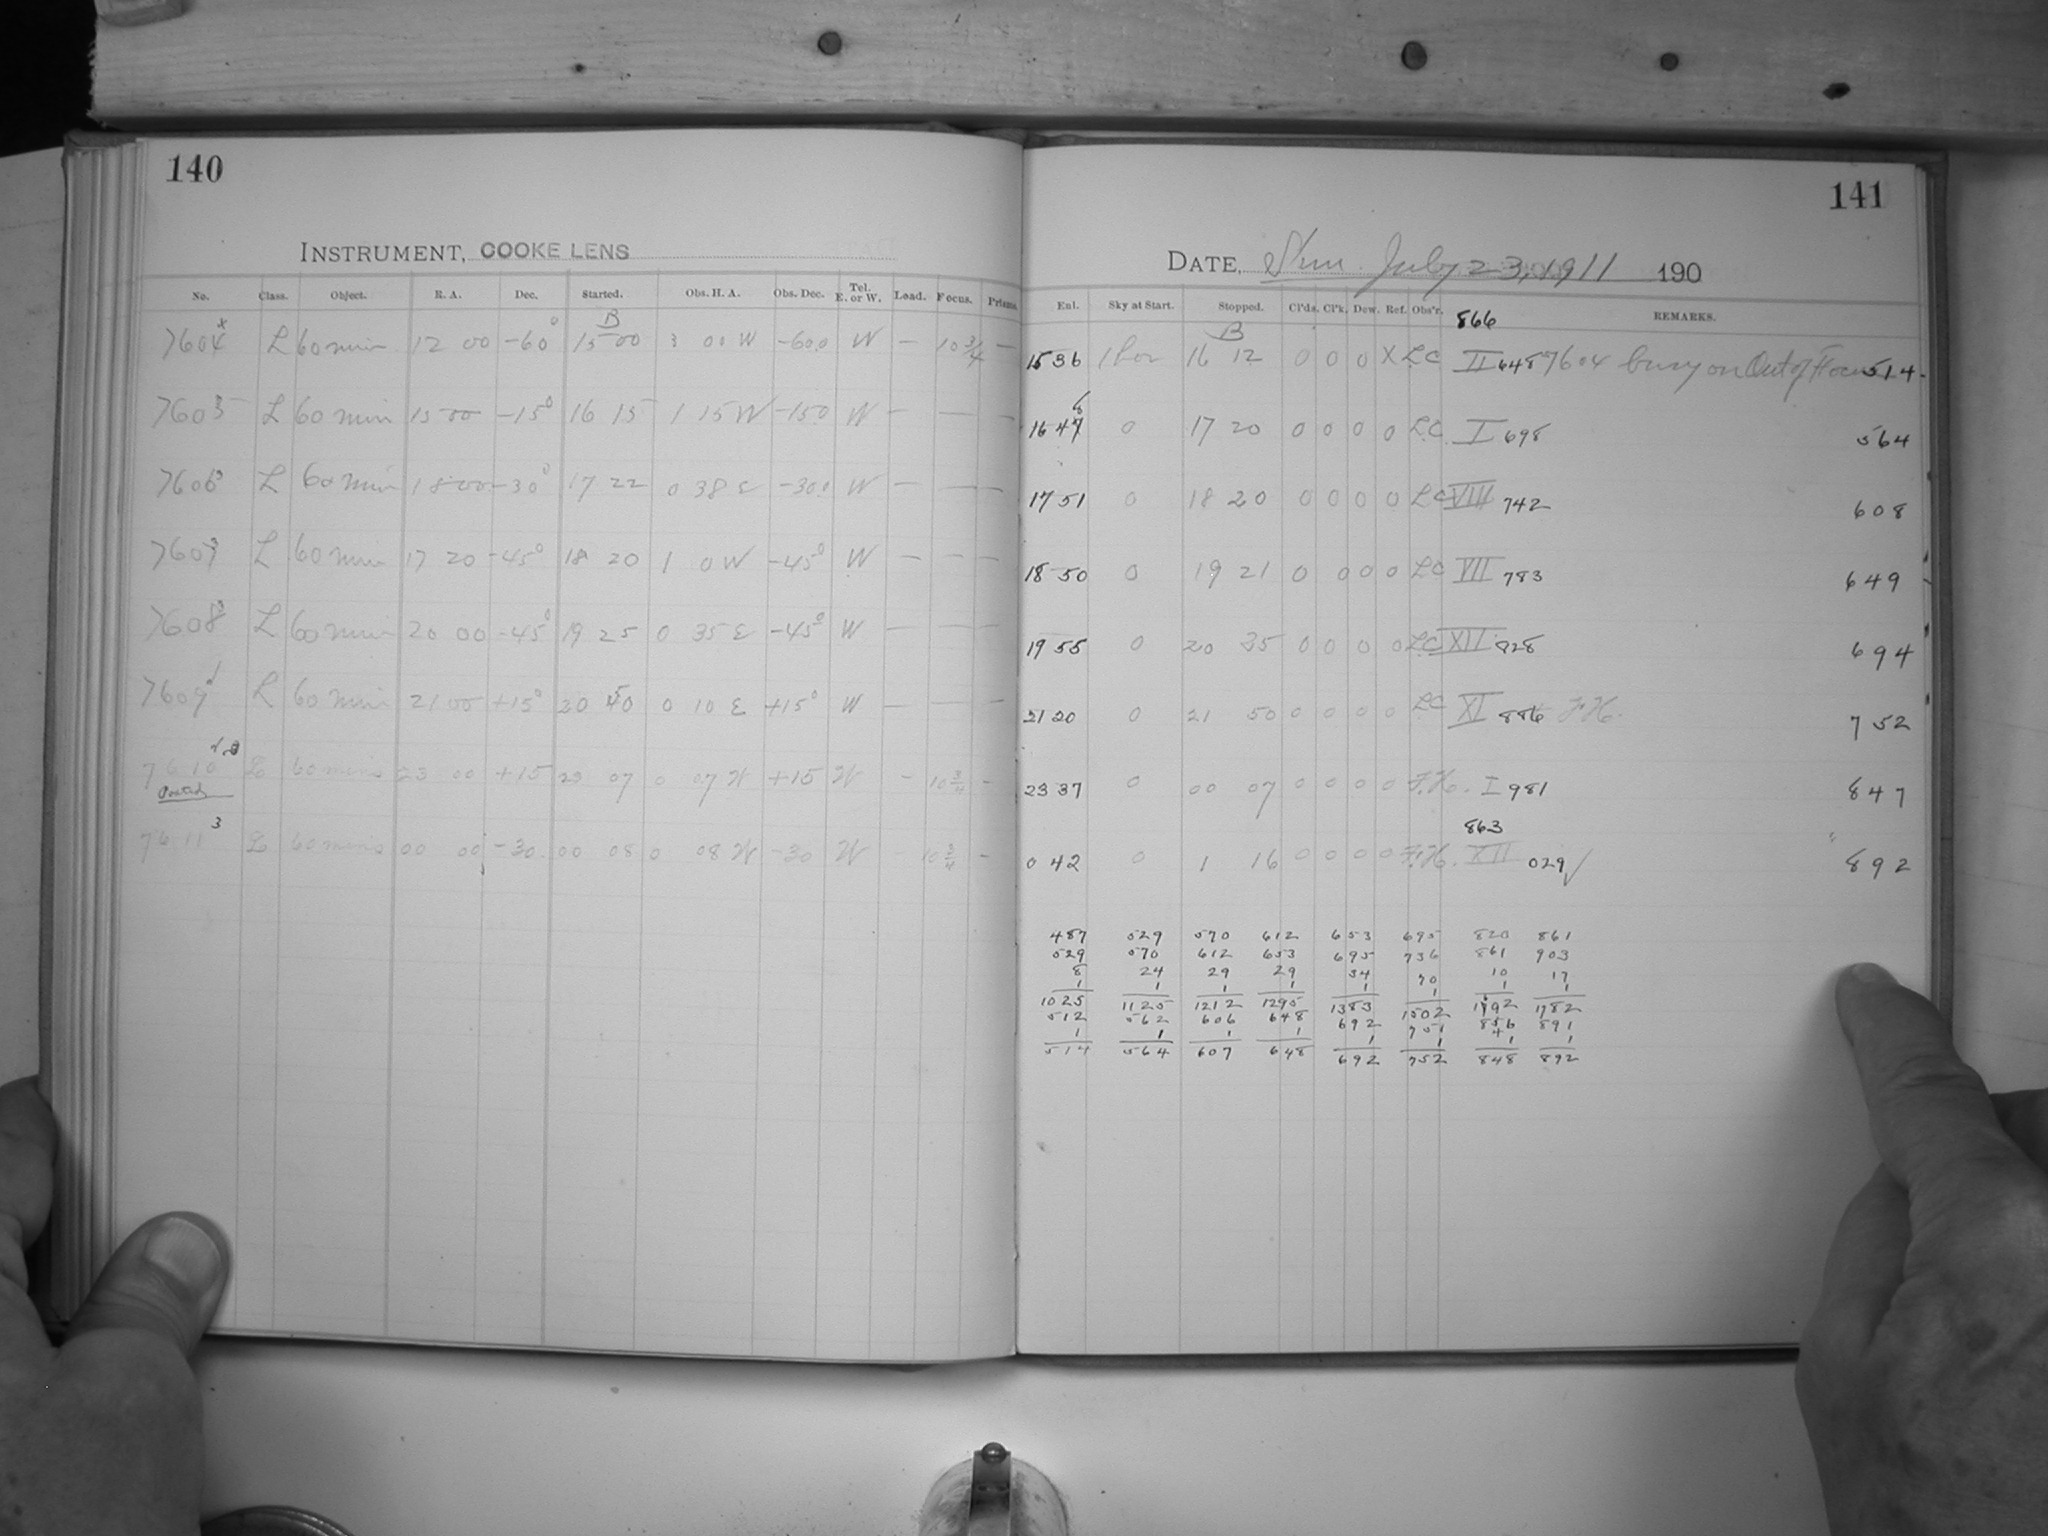 140
INSTRUMENT, COOKE LENS
No. Class. Object. R. A. Dec. Started. Obs. H. A. Obs. Dec. Tel. E. or W. Load. Focus. Prisms.
B
7604 x L 60 min 12 00 -60° 15 00 3 00 W -60.0 W — 10 3/4 —
7605 L 60 min 15 00 -15° 16 15 1 15 W -150 W — — —
7606 3 L 60 min 18 00 -30° 17 22 0 38 E -30.0 W — — —
7607 3 L 60 min 17 20 -45° 18 20 1 0 W -45° W — — —
7608 3 L 60 min 20 00 -45° 19 25 0 35 E -45° W — — —
7609 L 60 min 21 00 +15° 20 50 0 10 E +15° W — — —
7610 L 60 mins 23 00 +15 23 07 0 07 W +15 W — 10 3/4 —
7611 3 L 60 mins 00 00 -30 00 08 0 08 W -30 W — 10 3/4 —
141
DATE, Sun. July 23, 1911 190
Enl. Sky at Start. Stopped. Cl'ds. Cl'k. Dew. Ref. Obs'r. REMARKS.
866
B
15 36 1 hor 16 12 0 0 0 X LC II 648 7604 bury on Out of Focus 514
16 47 6 0 17 20 0 0 0 0 LC I 698 564
17 51 0 18 20 0 0 0 0 LC VIII 742 608
18 50 0 19 21 0 0 0 0 LC VII 783 649
19 55 0 20 35 0 0 0 0 LC XII 828 694
21 20 0 21 50 0 0 0 0 LC XI 886 F.H. 752
23 37 0 00 07 0 0 0 0 F.H. I 981 847
863
0 42 0 1 16 0 0 0 0 F.H. XII 029 √ 892
487 529 570 612 653 695 820 861
529 570 612 653 695 736 861 903
8 24 29 29 34 70 10 17
1 1 1 1 1 1 1 1
1025 1125 1212 1295 1383 1502 1692 1782
512 562 606 648 692 751 846 891
1 1 1 1 1 1 1 1
514 564 607 648 692 752 848 892